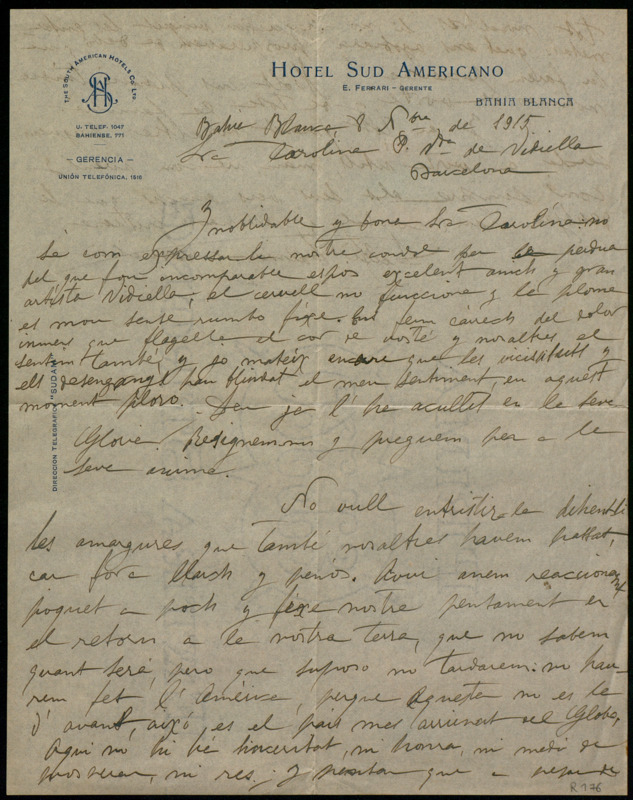 THE SOUTH AMERICAN HOTELS Co. LTD.
U. TELEF. 1047
BAHIENSE, 771
GERENCIA
UNIÓN TELEFÓNICA, 1616
HOTEL SUD AMERICANO
E. FERRARI - GERENTE
BAHIA BLANCA
DIRECCIÓN TELEGRÁFICA "SUDAM"
Bahia Blanca, 8 Nbre de 1915
Sra Carolina P. Vda de Vidiella
Barcelona
Inoblidable y bona Sra Carolina: no
sé com expressarli nostre condol per la perdua
del que fou incomparable espos excelent amich y gran
artista Vidiella; el cervell no funciona y la ploma
es mou sense rumbo fixe. Ens fem cárrech del dolor
inmens que flagella el cor de vosté y nosaltres el
sentim també, y jo mateix encare que les vicisituts y
els desenganys han blindat el meu sentiment, en aquest
moment ploro. Deu ja l'ha acullit en la seva
Gloria! Resignemnos y preguem per a la
seva anima.
No vull entristirla dihentli
les amargures que també nosaltres havem passat,
car fora llarch y penós. Avui anem reaccionant
poquet a poch y fixe nostre pensament en
el retorn a la nostra terra, que no sabem
quant será, pero que suposo no tardarem: no hau-
rem fet l'América, perque aquesta no es la
d'avant, aixó es el pais mes arruinat del Globo,
Aqui no hi há honor, ni medi de
prosperar, ni res; y que a pesar de
R 176